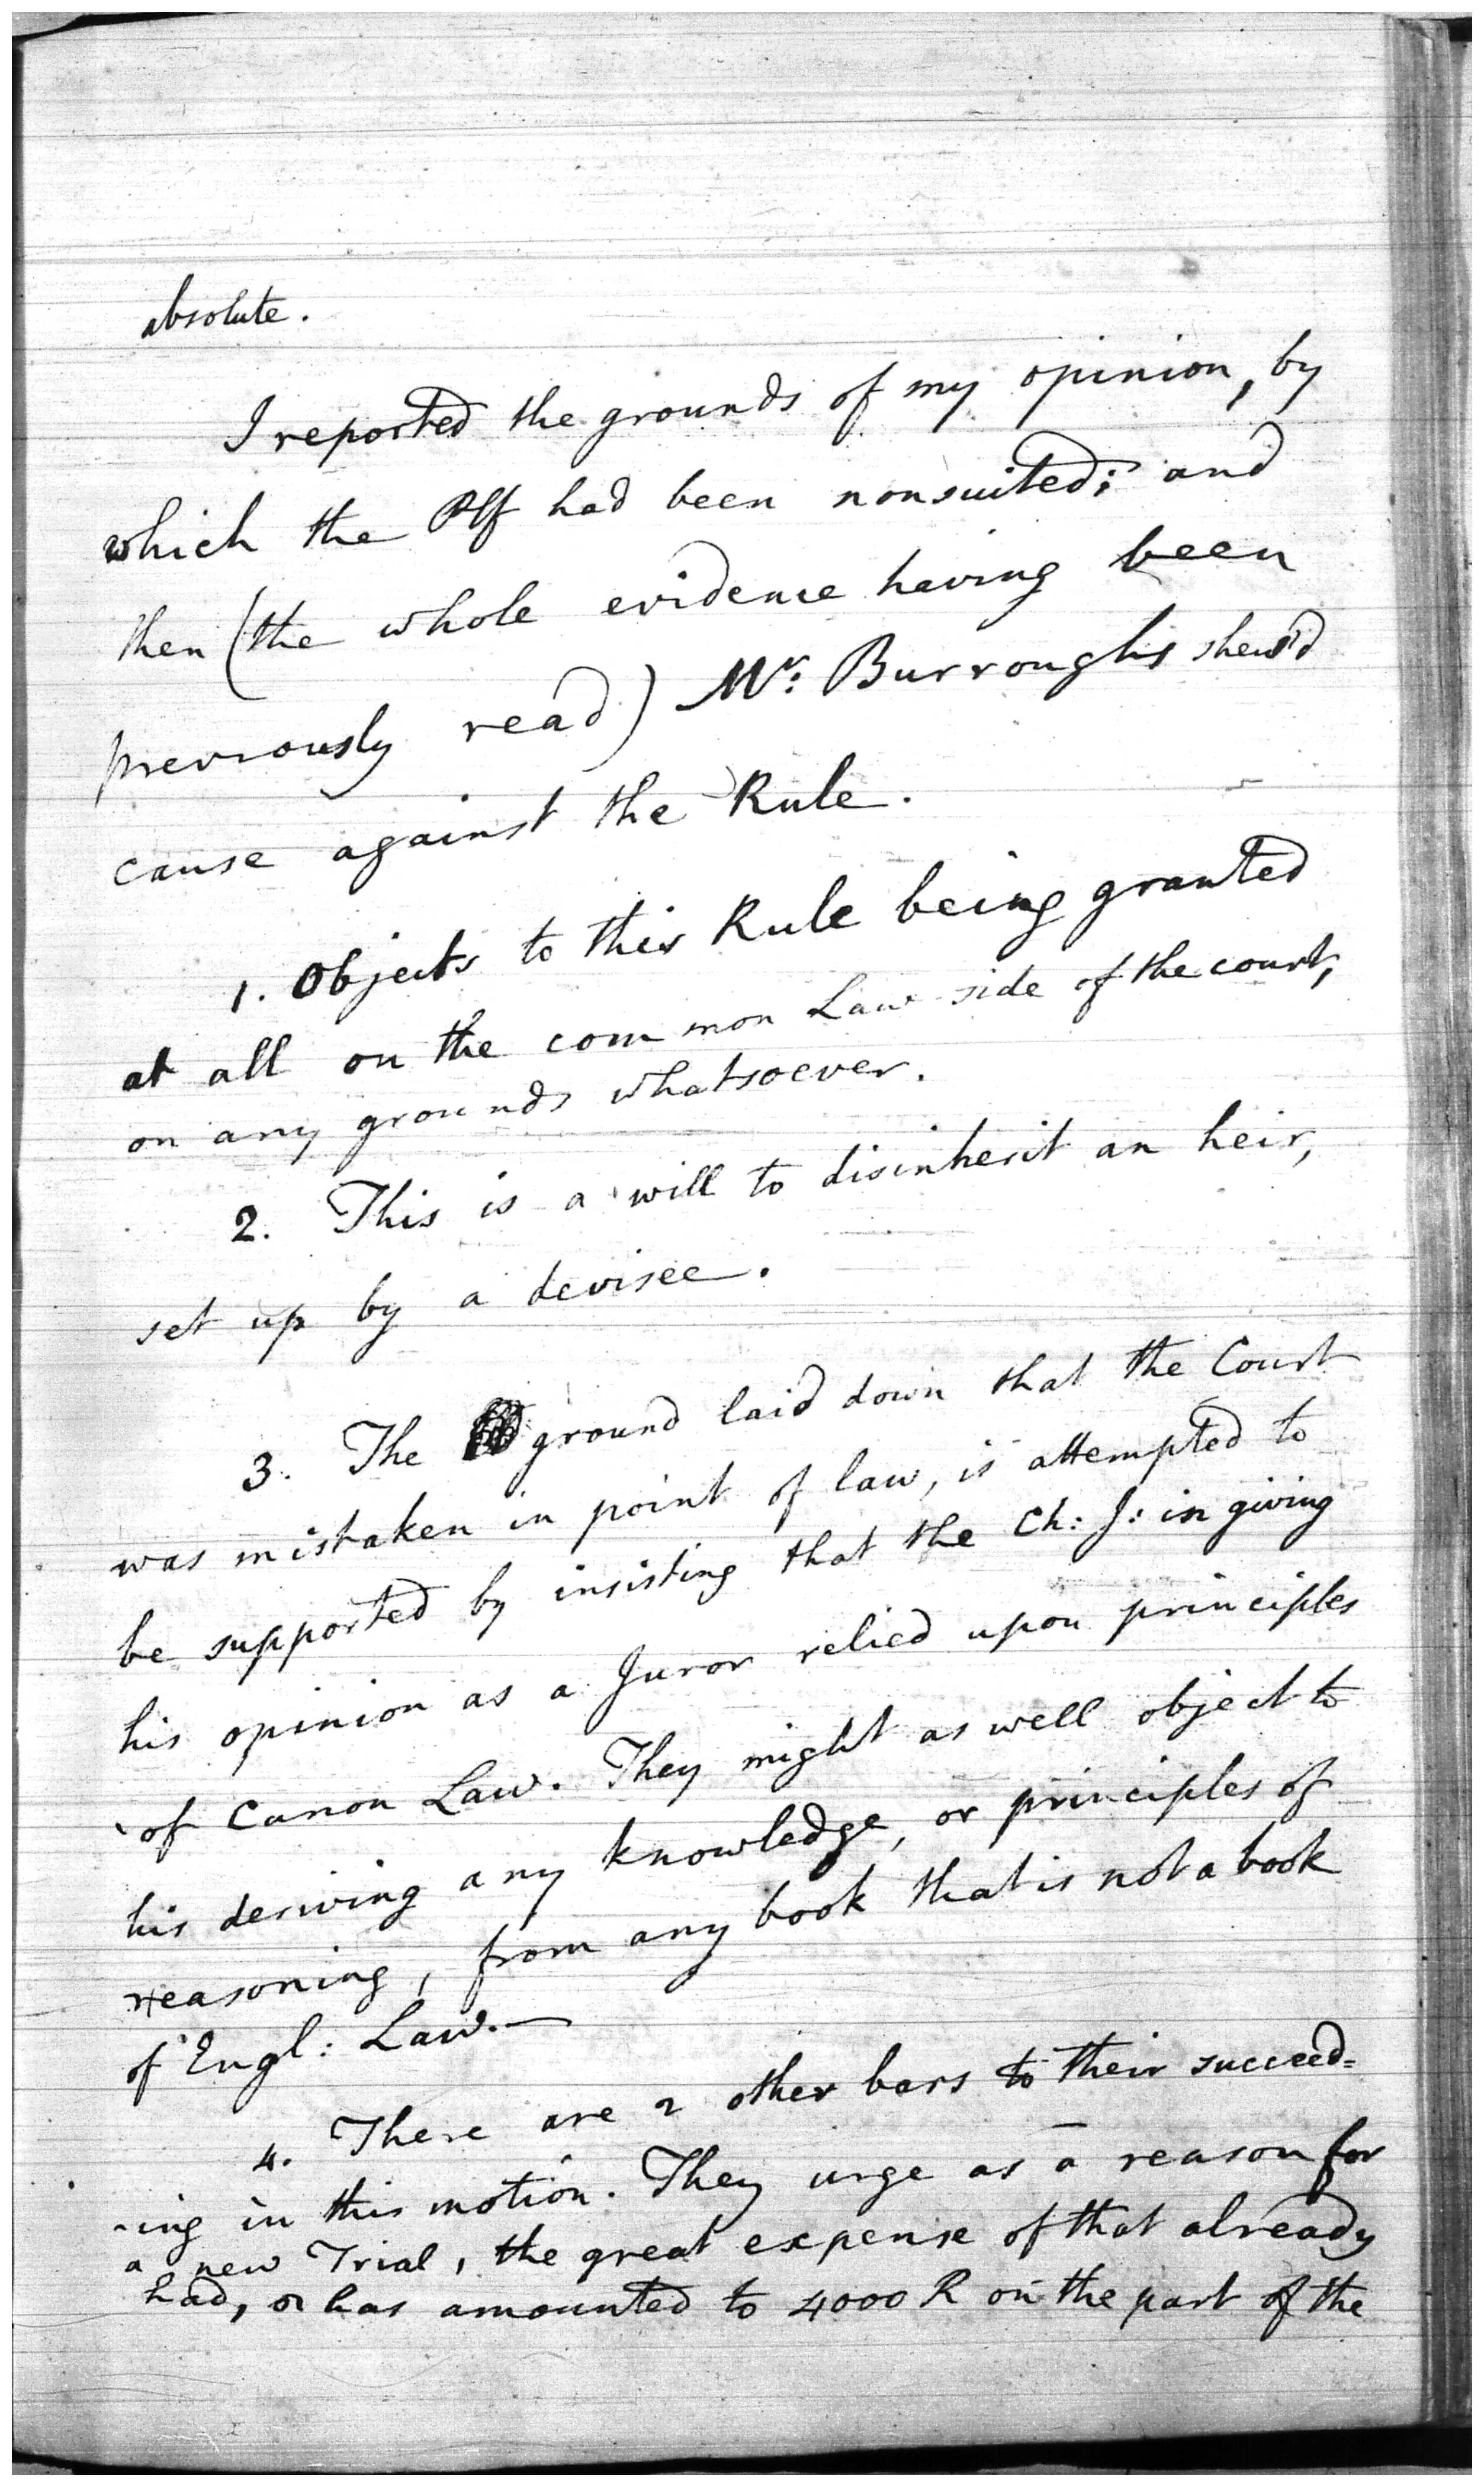 absolute.
I reported the grounds of my opinion, by
which the Plf had been nonsuited; and
then (the whole evidence having been
previously read) Mr: Burroughs shew'd
cause against the Rule.
1. Objects to this Rule being granted
at all on the common Law side of the court,
on any grounds whatsoever.
2. This is a will to disinherit an heir,
set up by a devisee.
3. The ground laid down that the Court
was mistaken in point of law, is attempted to
be supported by insisting that the Ch: J: in giving
his opinion as a Juror relied upon principles
of Canon Law. They might as well object to
his deriving any knowledge, or principles of
reasoning, from any book that is not a book
of Engl: Law.—
4. There are 2 other bars to their succeed=
-ing in this motion. They urge as a reason for
a new Trial, the great expense of that already
had, has amounted to 4000 R on the part of the